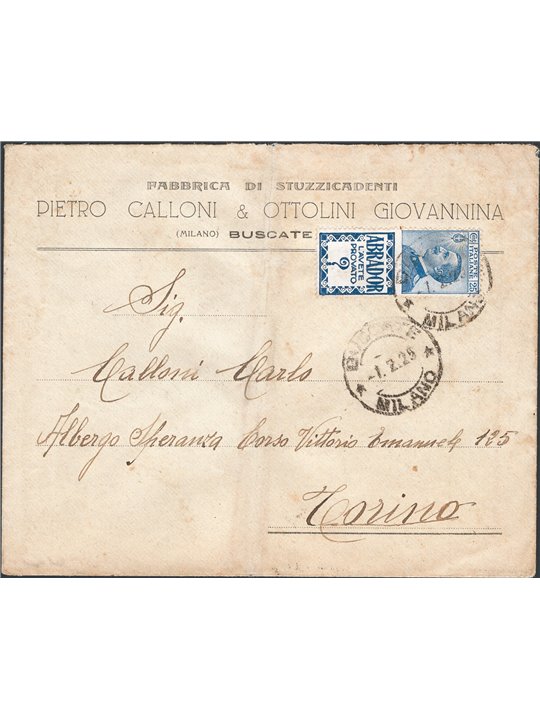 FABBRICA DI STUZZICADENTI
PIETRO CALLONI & OTTOLINI GIOVANNINA
(MILANO) BUSCATE
ABRADOR
L'AVETE
PROVATO
?
POSTE
ITALIANE
25
MILANO
BUSCATE
-1.2.25
MILANO
Sig.
Calloni Carlo
Albergo Speranza Corso Vittorio Emanuele 125
Torino